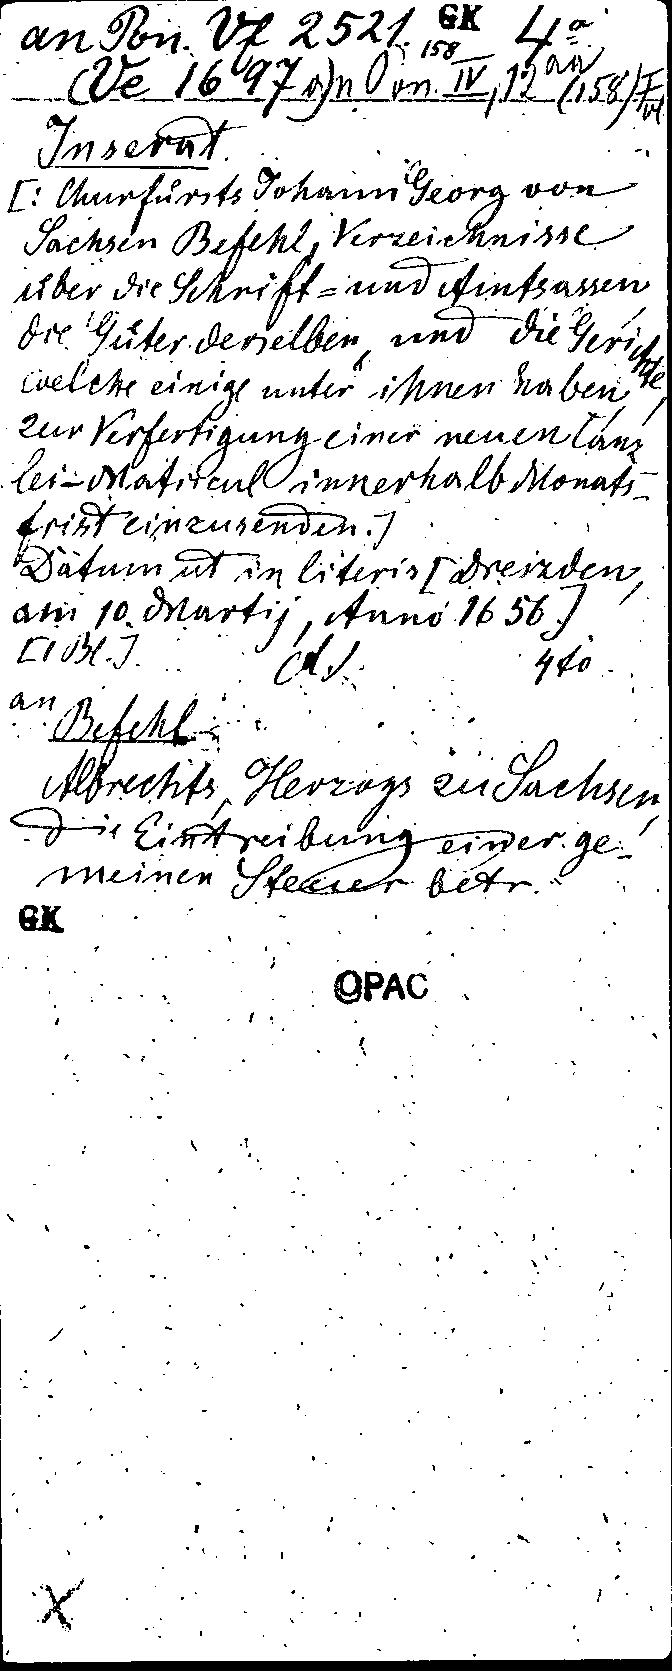 an Pon. Vf 2521. GK 4a
158
(Ve 1697 a)n Pon. IV, 12 an (158)
Inserat.
[: Churfürsts Johann Georg von
Sachsen Befehl, Verzeichnisse
über die Schrift= und Amtsassen
die Güter derselben, und die Gerichte,
welche einige unter ihnen haben,
zur Verfertigung einer neuen Canz
lei-Matricul innerhalb Monats-
frist einzusenden.]
Datum ut in literis [Dreizden,
am 10. Martij, Anno 1656.]
[1 Bl.]. 4to
an Befehl
Albrechts, Herzogs zu Sachsen,
die Eintreibung einer ge-
meinen Steuer betr.
GK
OPAC
X